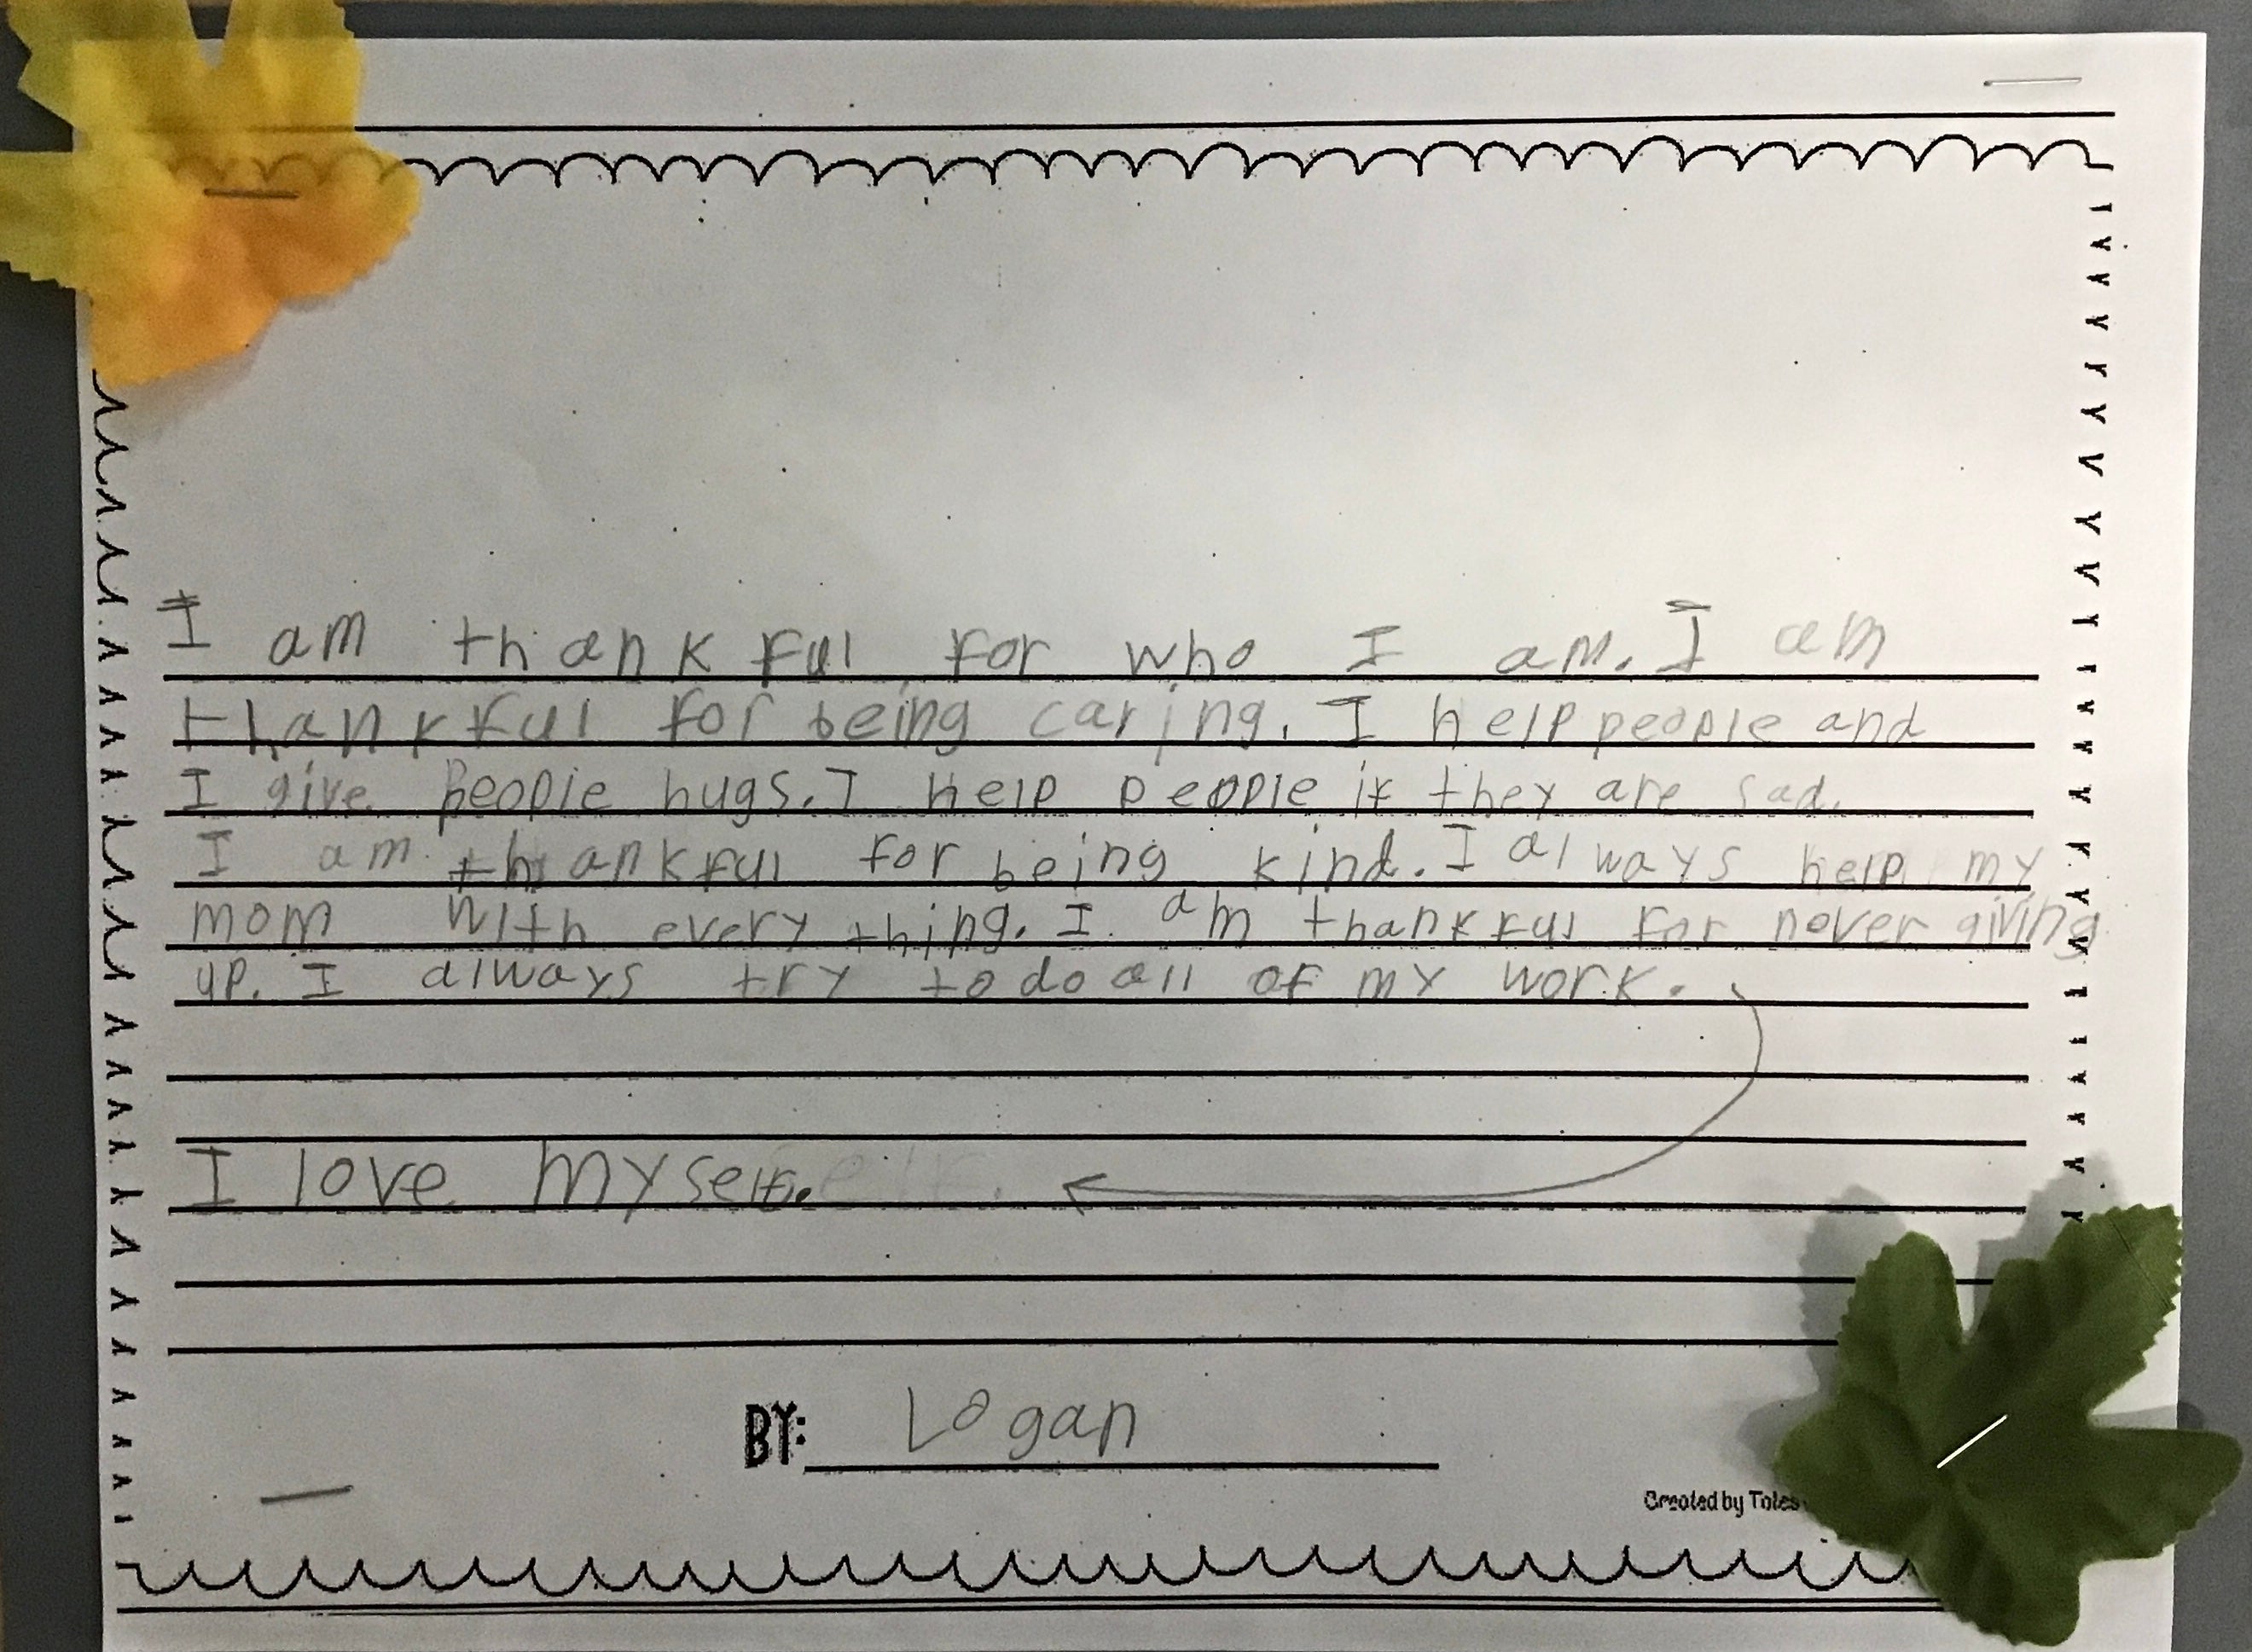 I am thankful for who I am. I am
thankful for being caring. I help people and
I give people hugs. I help people if they are sad.
I am thankful for being kind. I always help my
mom with every thing. I am thankful for never giving
up. I always try to do all of my work.
I love myself.
BY: Logan
Created by Toles